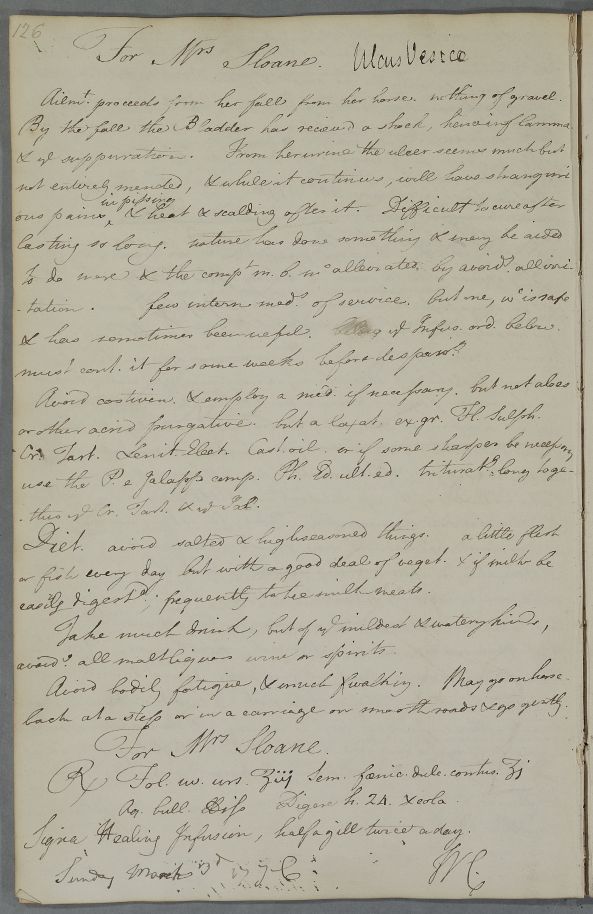 126
For Mrs Sloane. Ulcus Vesicæ
Ailmt. proceeds from her fall from her horse. nothing of gravel.
By the fall the Bladder has received a shock, hence inflamma
& yt suppuration. From her urine the ulcer seems much but
not entirely mended, & while it continues, will have stranguri
in pissing
ous pains, & heat & scalding after it. Difficult to cure after
lasting so long. nature has done something & may be aided
to do more & the compt m. b. mc alleviated by avoidg. all irri-
-tation. few intern meds. of service. but one, wc is safe
& has sometimes been useful. yt Infus. ord. below.
must cont. it for some weeks before despairg.
Avoid costiven. & employ a med. if necessary. but not aloes
or other acrid purgative. but a laxat. ex. gr. Fl. Sulph.
Cr. Tart. Lenit. Elect. Cast. oil. or if some sharper be necessary
use the P. e Jalapp comp. Ph. Ed. ult. ed. trituratg. long toge-
-ther yt Cr. Tart. & yt Jal.
Diet. avoid salted & high seasoned things. a little flesh
or fish every day but with a good deal of veget. & if milk be
easily digested, frequently take milk meats.
Take much drink, but of yt mildest & watery kinds,
avoidg. all malt liquors wine or spirits.
Avoid bodily fatigue, & much walking. May go on horse-
back at a step or in a carriage on smooth roads & go gently.
For Mrs Sloane.
℞ Fol. uv. urs. ʒiij Sem. fœnic. dulc. contus. ʒj
Aq. bull. ℔iſs Digere h. 24. & cola.
Signa Healing Infusion, half a gill twice a day.
Sunday March 3d 177
WC.